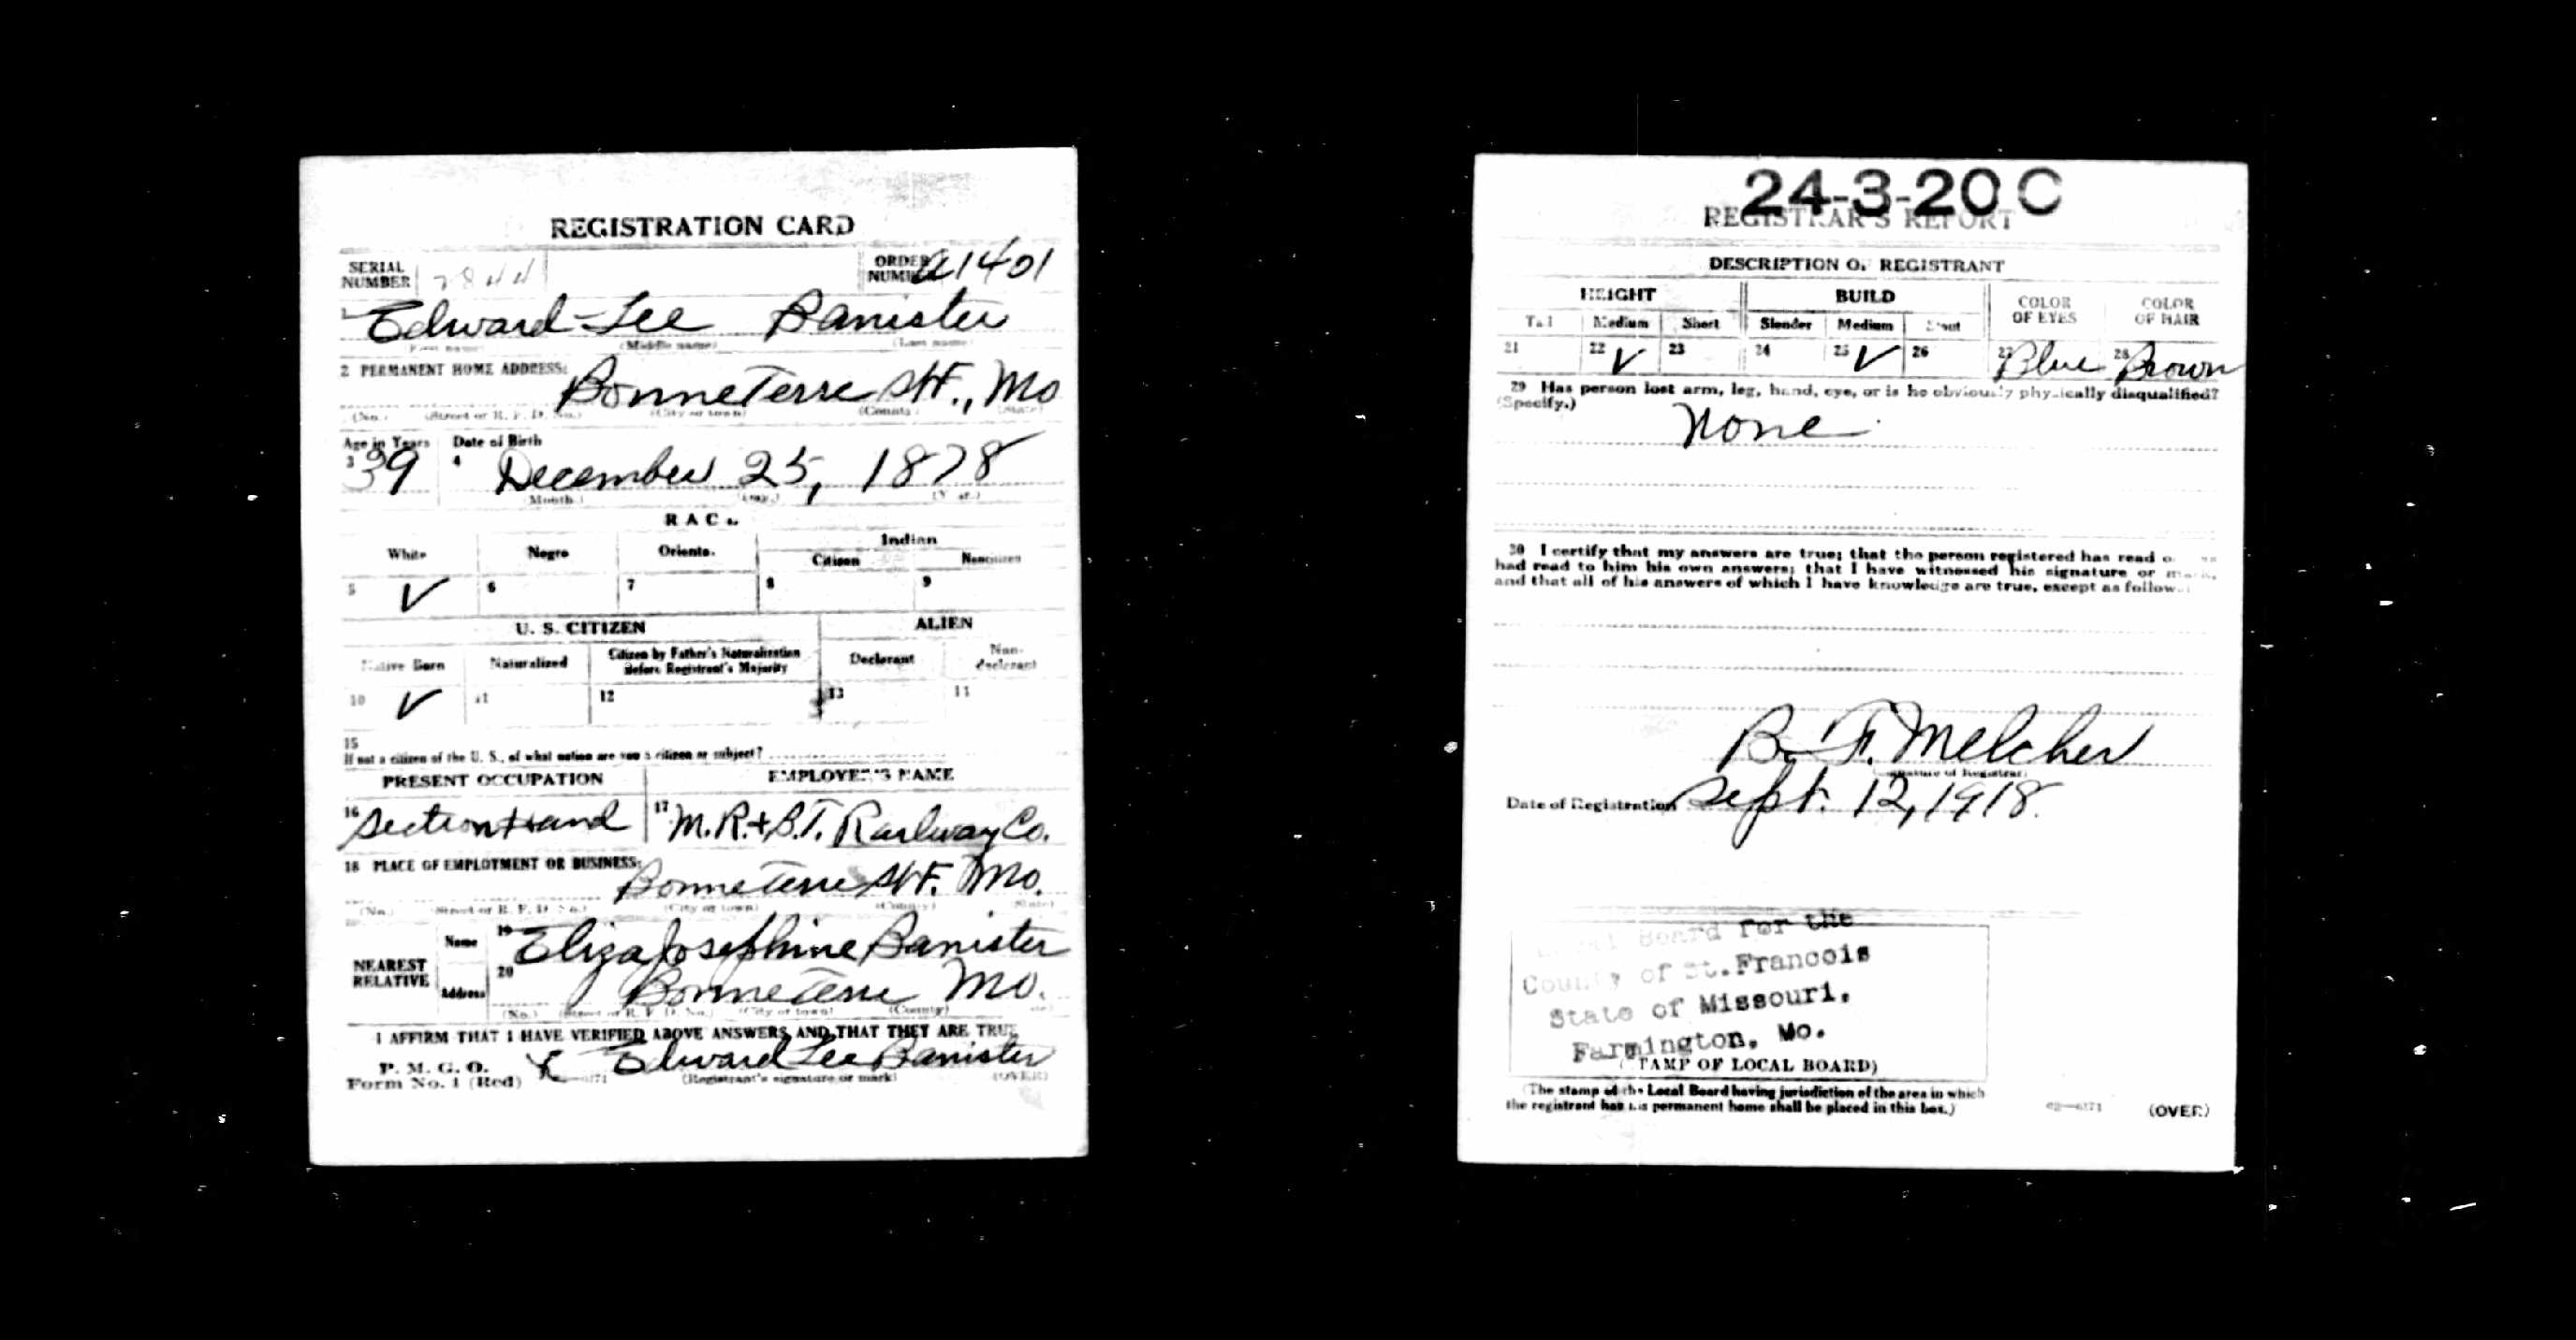 REGISTRATION CARD
SERIAL NUMBER 7844 ORDER NUMBER A1401
1 Edward Lee Banister
(First name) (Middle name) (Last name)
2 PERMANENT HOME ADDRESS:
Bonne Terre St F., Mo
(No.) (Street or R. F. D. No.) (City or town) (County) (State)
Age in Years Date of Birth
3 39 4 December 25, 1878
(Month) (Day) (Year)
RACE
White Negro Oriental Indian
Citizen Noncitizen
5 ✓ 6 7 8 9
U. S. CITIZEN ALIEN
Native Born Naturalized Citizen by Father's Naturalization Before Registrant's Majority Declarant Non-declarant
10 ✓ 11 12 13 14
15
If not a citizen of the U. S., of what nation are you a citizen or subject?
PRESENT OCCUPATION EMPLOYER'S NAME
16 Section Hand 17 M.R. & B.T. Railway Co.
18 PLACE OF EMPLOYMENT OR BUSINESS:
Bonne Terre St F. Mo.
(No.) (Street or R. F. D. No.) (City or town) (County) (State)
NEAREST RELATIVE
Name 19 Eliza Josephine Banister
Address 20 Bonne Terre Mo.
(No.) (Street or R. F. D. No.) (City or town) (County)
I AFFIRM THAT I HAVE VERIFIED ABOVE ANSWERS AND THAT THEY ARE TRUE
P. M. G. O.
Form No. 1 (Red) x Edward Lee Banister
(Registrant's signature or mark) (OVER)
24-3-20 C
REGISTRAR'S REPORT
DESCRIPTION OF REGISTRANT
HEIGHT BUILD COLOR OF EYES COLOR OF HAIR
Tall Medium Short Slender Medium Stout
21 22 ✓ 23 24 25 ✓ 26 27 Blue 28 Brown
29 Has person lost arm, leg, hand, eye, or is he obviously physically disqualified?
(Specify.)
None
30 I certify that my answers are true; that the person registered has read or has
had read to him his own answers; that I have witnessed his signature or mark,
and that all of his answers of which I have knowledge are true, except as follows:
B. F. Melcher
(Signature of Registrar)
Date of Registration Sept. 12, 1918.
Local Board for the
County of St. Francois
State of Missouri,
Farmington, Mo.
(STAMP OF LOCAL BOARD)
(The stamp of the Local Board having jurisdiction of the area in which
the registrant has his permanent home shall be placed in this box.)
(OVER)